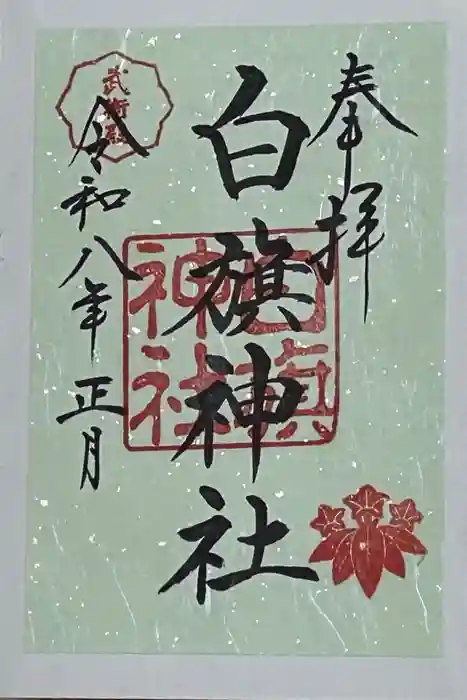 奉拝
白旗神社
令和八年正月
武衛殿
白旗神社